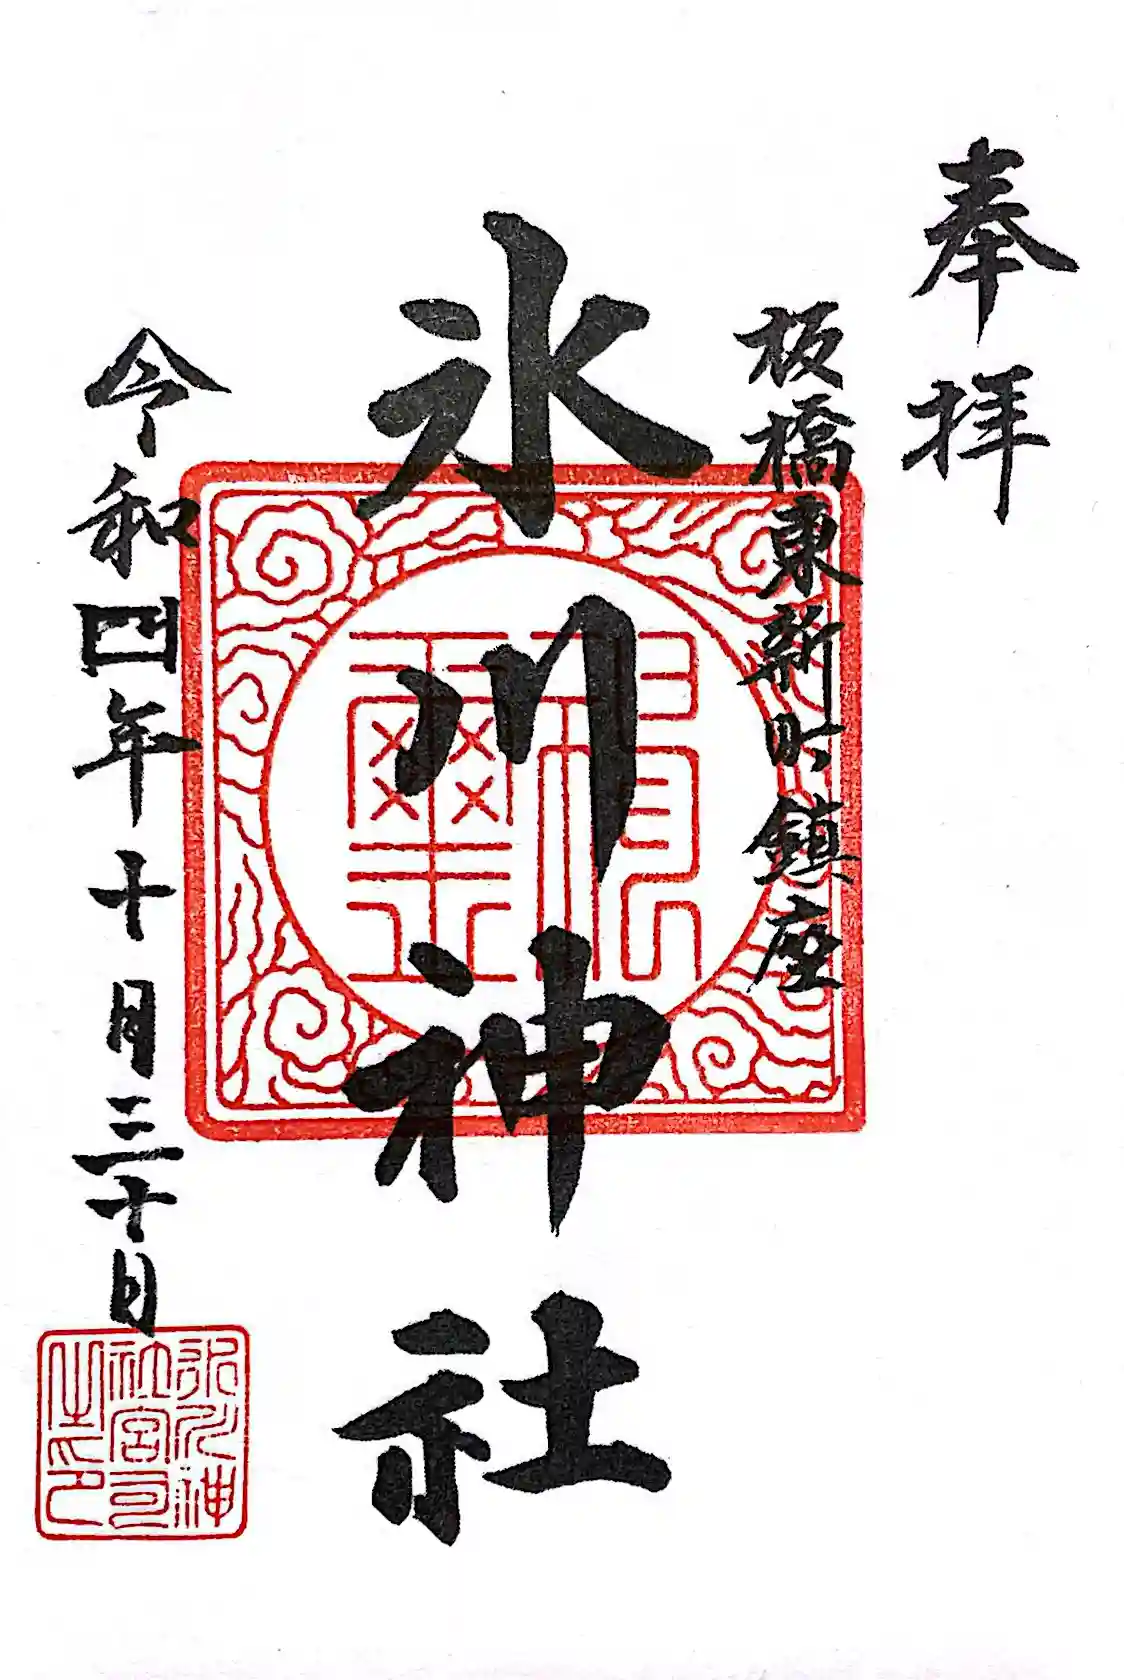 奉拝
板橋東新町鎮座
氷川神社
令和四年十月三十日
氷川神
社宮司
之印